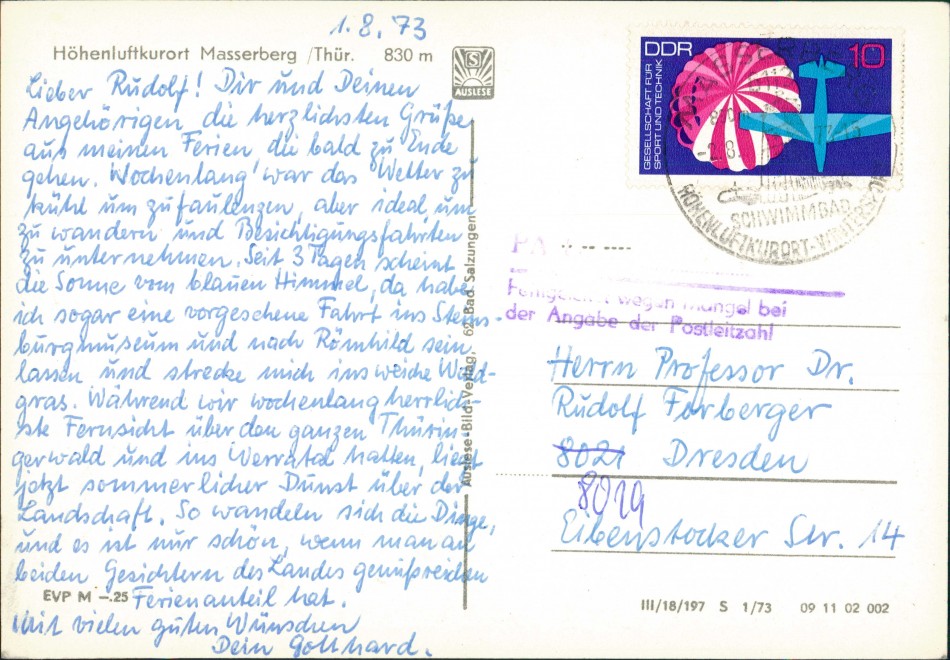 1.8.73
Höhenluftkurort Masserberg /Thür. 830 m
S
AUSLESE
Lieber Rudolf! Dir und Deinen
Angehörigen die herzlichsten Grüße
aus meinen Ferien die bald zu Ende
gehen. Wochenlang war das Wetter zu
kühl um zu faulenzen, aber ideal, um
zu wandern und Besichtigungsfahrten
zu unternehmen. Seit 3 Tagen scheint
die Sonne vom blauen Himmel, da habe
ich sogar eine vorgesehene Fahrt ins Steins-
burgmuseum und nach Römhild sein
lassen und strecke mich ins weiche Wald-
gras. Während wir wochenlang herrlich-
ste Fernsicht über den ganzen Thürin-
gerwald und ins Werratal hatten, liegt
jetzt sommerlicher Dunst über der
Landschaft. So wandeln sich die Dinge,
und es ist nur schön, wenn man an
beiden Gesichtern des Landes genußreichen
Ferienanteil hat.
Mit vielen guten Wünschen
Dein Gotthard.
EVP M –.25
Auslese-Bild-Verlag, 62 Bad Salzungen
DDR 10
GESELLSCHAFT FÜR
SPORT UND TECHNIK
830m
-2.8.
SCHWIMMBAD
HÖHENLUFTKURORT
PA
wegen Mangel bei
der Angabe der Postleitzahl
Herrn Professor Dr.
Rudolf Forberger
8021 Dresden
8019
Eibenstocker Str. 14
III/18/197 S 1/73 09 11 02 002